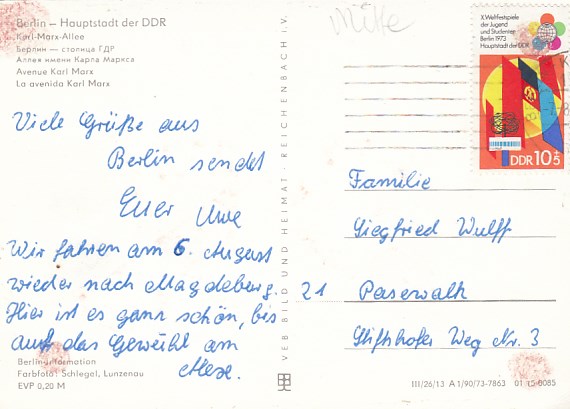 Berlin – Hauptstadt der DDR
Karl-Marx-Allee
Берлин — столица ГДР
Аллея имени Карла Маркса
Avenue Karl Marx
La avenida Karl Marx
Viele Grüße aus
Berlin sendet
Euer Uwe
Wir fahren am 6. August
wieder nach Magdeburg.
Hier ist es ganz schön, bis
auf das Gewühl am
Alex.
Berlin-Information
Farbfoto: Schlegel, Lunzenau
EVP 0,20 M
VEB BILD UND HEIMAT · REICHENBACH i. V.
Mitte
X. Weltfestspiele
der Jugend
und Studenten
Berlin 1973
Hauptstadt der DDR
DDR 10+5
Familie
Siegfried Wulff
21 Pasewalk
Stiftshofer Weg Nr. 3
III/26/13 A 1/90/73-7863 01 15 0085